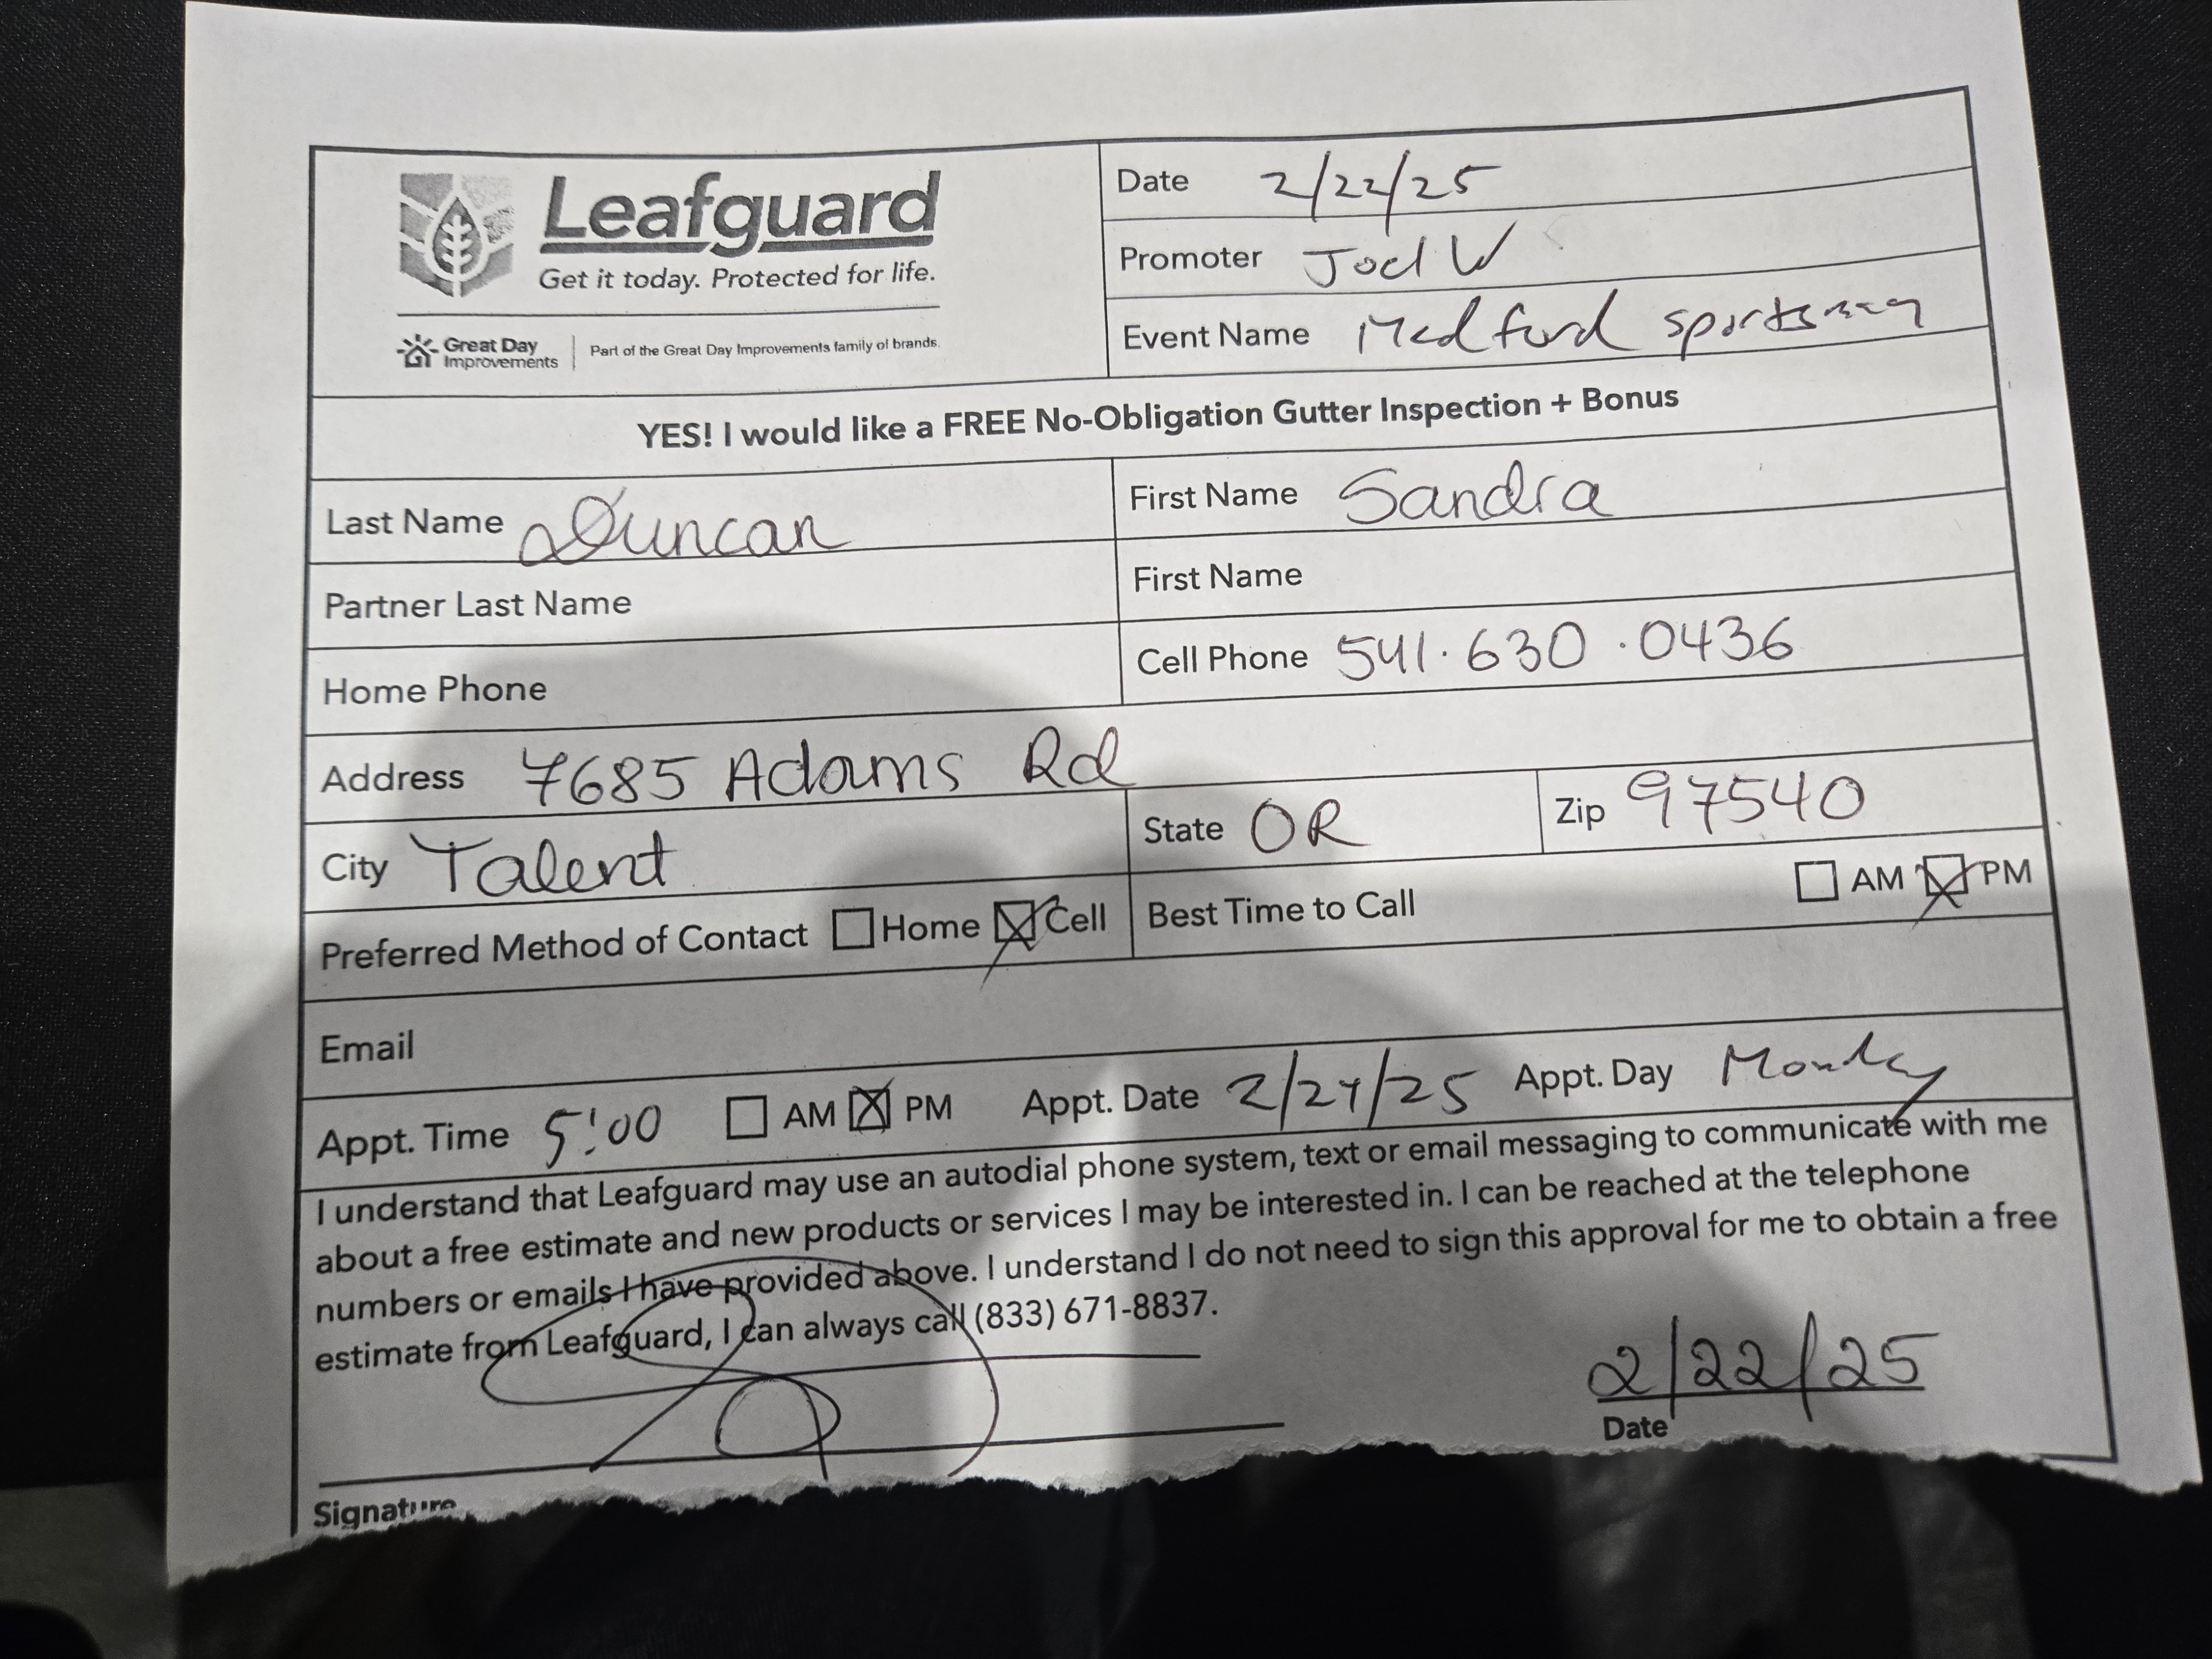 Leafguard
Get it today. Protected for life.
Great Day Improvements | Part of the Great Day Improvements family of brands.
Date 2/22/25
Promoter Joel W
Event Name Medford sportsman
YES! I would like a FREE No-Obligation Gutter Inspection + Bonus
Last Name Duncan First Name Sandra
Partner Last Name First Name
Home Phone Cell Phone 541.630.0436
Address 7685 Adams Rd
City Talent State OR Zip 97540
Preferred Method of Contact ☐ Home ☒ Cell Best Time to Call ☐ AM ☒ PM
Email
Appt. Time 5:00 ☐ AM ☒ PM Appt. Date 2/24/25 Appt. Day Monday
I understand that Leafguard may use an autodial phone system, text or email messaging to communicate with me
about a free estimate and new products or services I may be interested in. I can be reached at the telephone
numbers or emails I have provided above. I understand I do not need to sign this approval for me to obtain a free
estimate from Leafguard, I can always call (833) 671-8837.
2/22/25
Signature Date